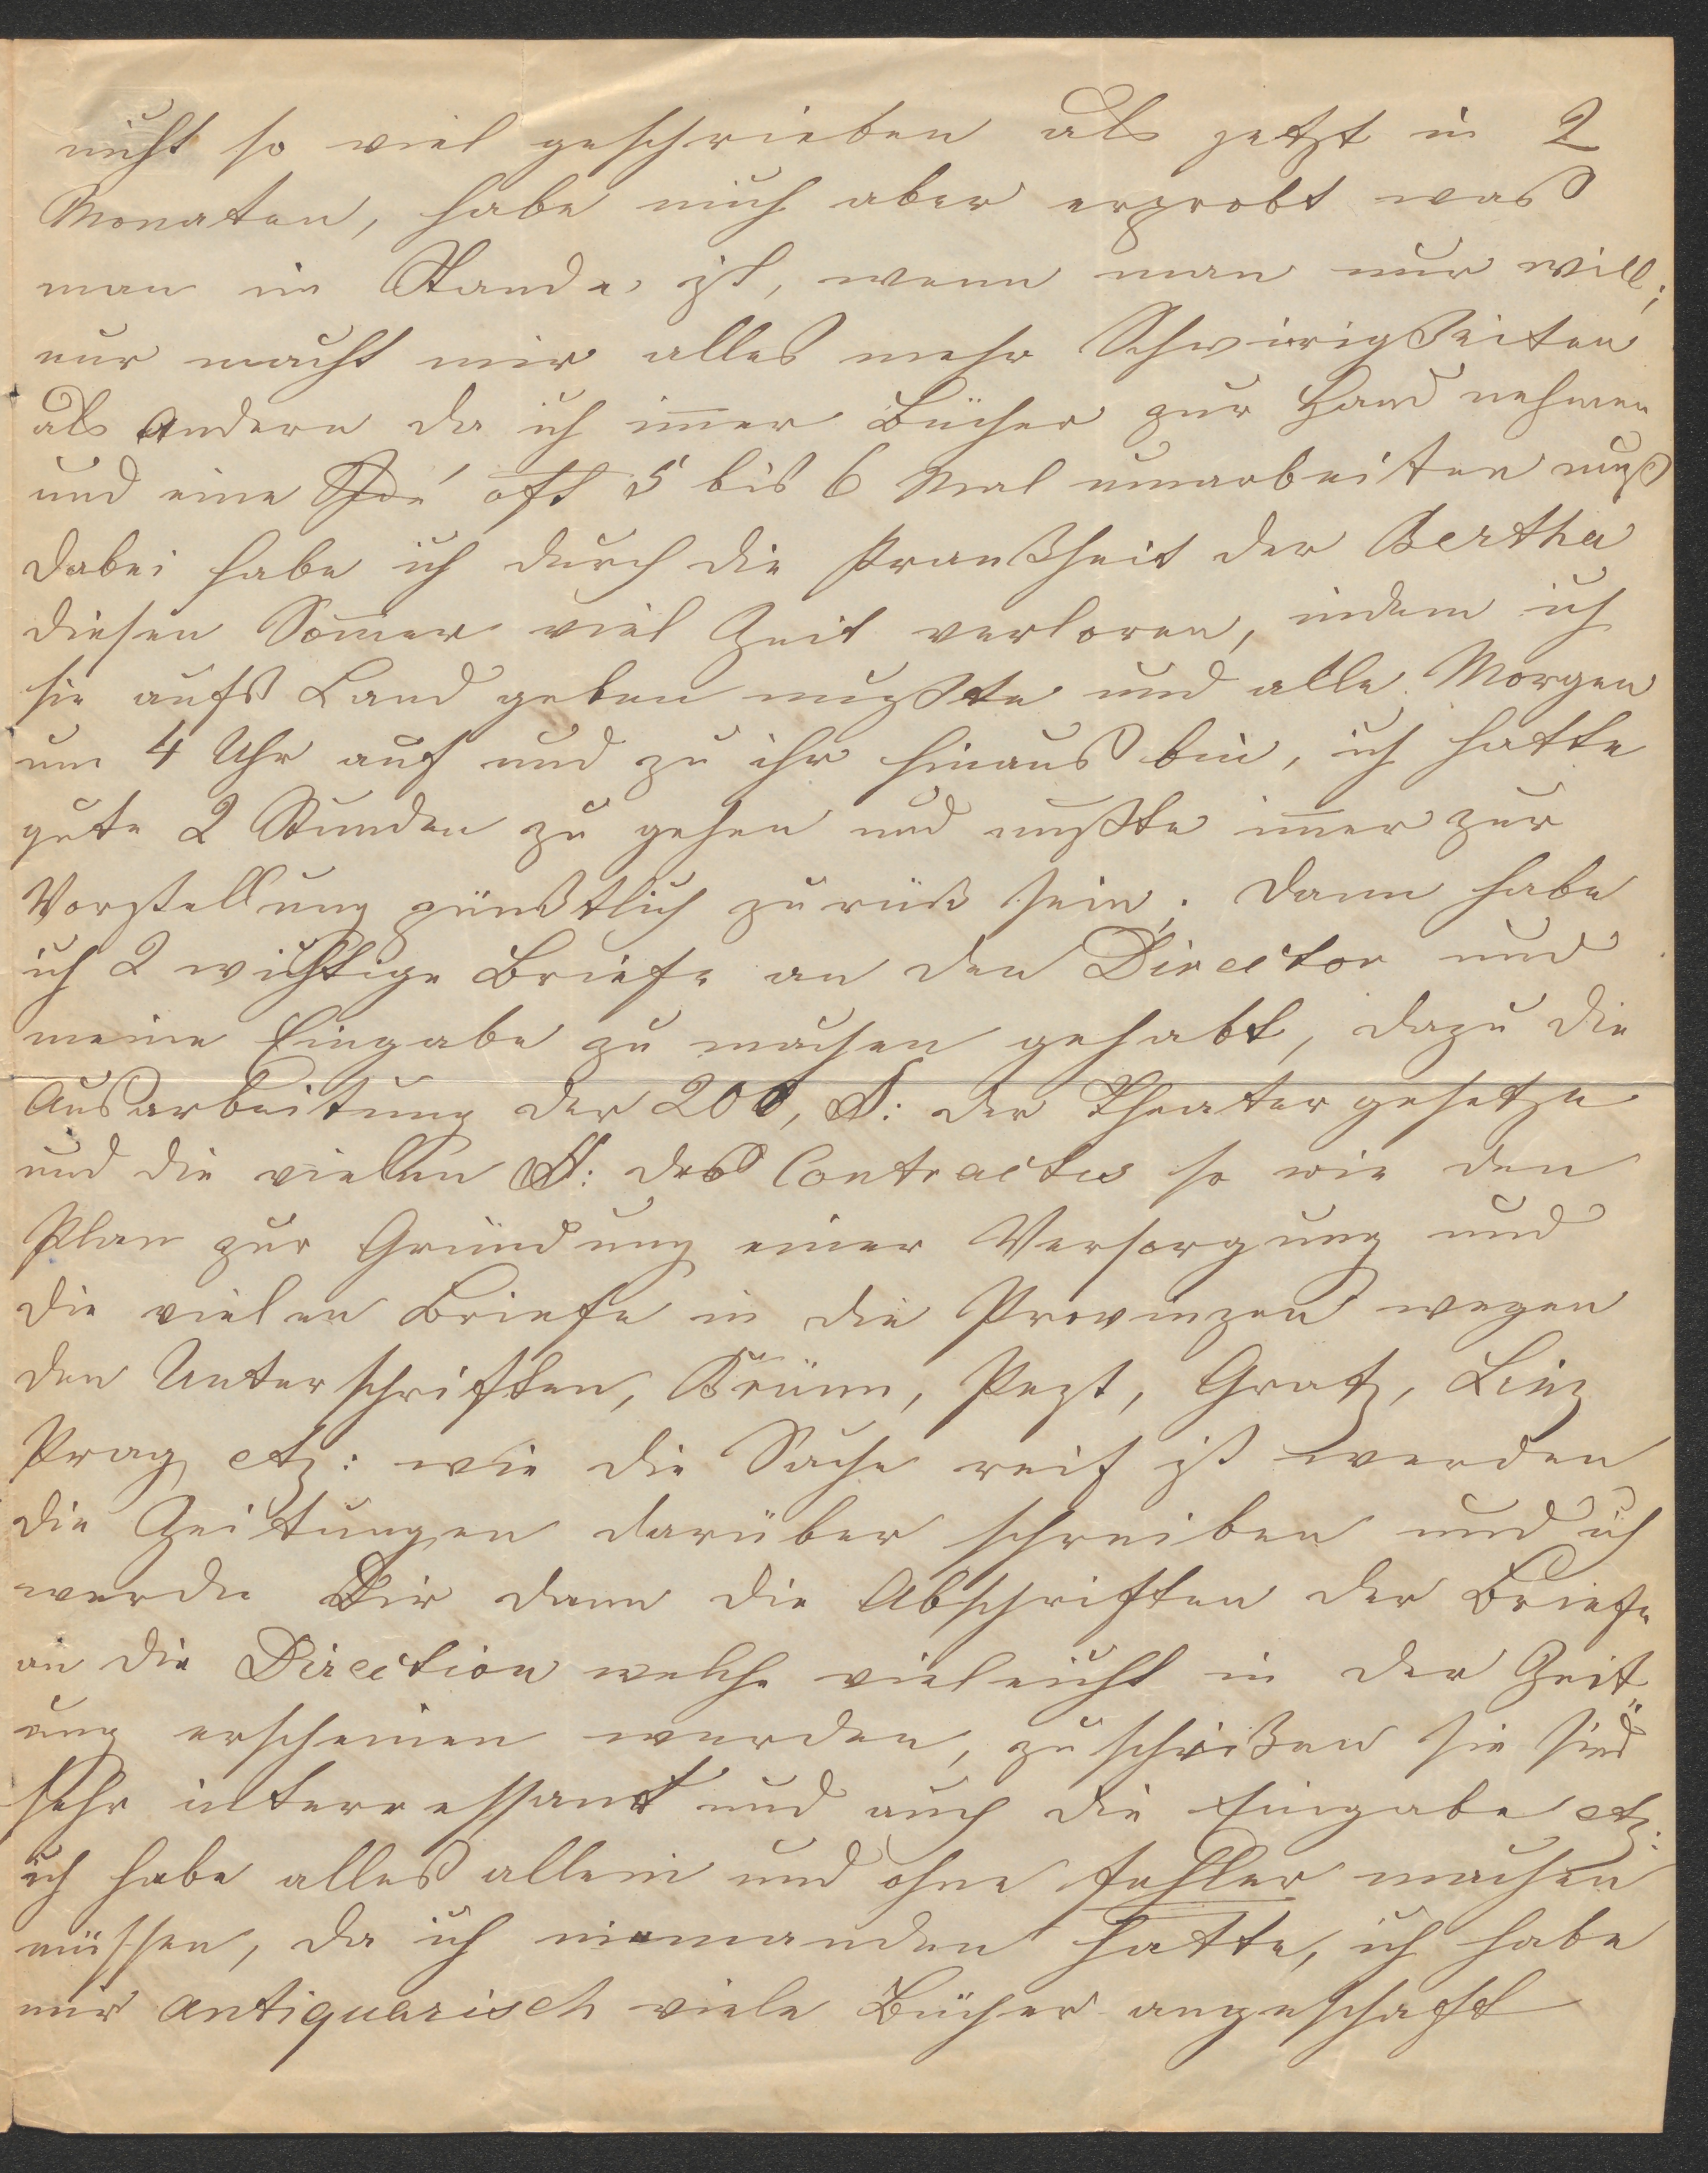 nicht so viel geschrieben als jetzt in 2
Monaten, habe mich aber erprobt was
man im Stande ist, wenn man nur will;
nur macht mir alles mehr Schwirigkeiten
als Andern da ich im̅er Bücher zur Hand nehmen
und eine Ideé oft 5 bis 6 Mal umarbeiten muß
dabei habe ich durch die Krankheit der Bertha
diesen Som̅er viel Zeit verloren, indem ich
sie aufs Land geben mußte und alle Morgen
um 4 Uhr auf und zu ihr hinaus bin, ich hatte
gute 2 Stunden zu gehen und mußte im̅er zur
Vorstellung pünktlich zurük sein; dann habe
ich 2 wichtige Briefe an den Director und
meine Eingabe zu machen gehabt, dazu die
Ausarbeitung der 200, §: der Theatergesetze
und die vielen §: des Contractes so wie den
Plan zur Gründung einer Versorgung und
die vielen Briefe in die Provinzen wegen
den Unterschriften, Brünn, Pest, Gratz, Linz
Prag etz: wie die Sache reif ist werden
die Zeitungen darüber schreiben und ich
werde Dir dann die Abschriften der Briefe
an die Direction welche vieleicht in der Zeit„
ung erscheinen werden, zuschiken sie sind
sehr interressant und auch die Eingabe etz:
ich habe alles allein und ohne Fehler machen
müssen, da ich niemanden hatte, ich habe
mir antiquarisch viele Bücher angeschaft